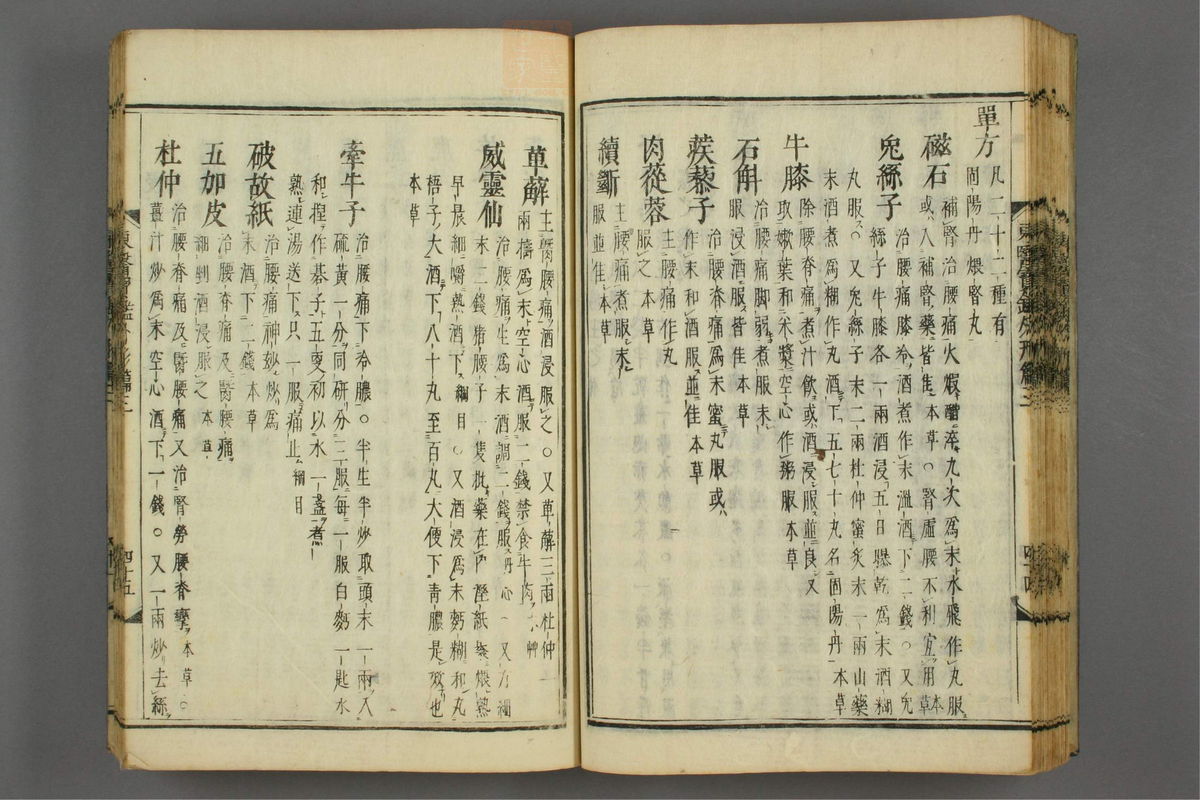 單方 凡二十二種有
固陽丹煨腎丸
磁石 補腎治腰痛火煆醋淬九次爲末水飛作丸服
或入補腎藥皆佳本草○腎虛腰不利宜用本草
兎絲子 治腰痛膝冷酒煮作末溫酒下二錢○又兎
絲子牛膝各一兩酒浸五日曝乾爲末酒糊
丸服○又兎絲子末二兩杜仲蜜炙末一兩山藥
末酒煮爲糊作丸酒下五七十丸名固陽丹本草
牛膝 除腰脊痛煮汁飮或酒浸服並良又
取嫩葉和米漿空心作粥服本草
石斛 冷腰痛脚弱煮服末
服浸酒服皆佳本草
蒺藜子 治腰脊痛爲末蜜丸服或
作末和酒服並佳本草
肉蓯蓉 主腰痛作丸
服之本草
續斷 主腰痛煮服末
服並佳本草
東醫寶鑑外形篇三
四十四
萆薢 主腎腰痛酒浸服之○又萆薢三兩杜仲一
兩擣爲末空心酒服二錢禁食牛肉
威靈仙 治腰痛生爲末酒調二錢服丹心○又方細
末二錢猪腰子一隻批藥在內濕紙裹煨熟
早晨細嚼熱酒下綱目○又酒浸爲末麪糊和丸
梧子大酒下八十丸至百丸大便下靑膿是效也
本草
牽牛子 治腰痛下冷膿○半生半炒取頭末一兩入
硫黃一分同硏分三服每一服白麪一匙水
和捏作碁子五更初以水一盞煮
熟連湯送下只一服痛止綱目
破故紙 治腰痛神妙炒爲
末酒下二錢本草
五加皮 治腰脊痛及腎腰痛
細剉酒浸服之本草
杜仲 治腰脊痛及腎腰痛又治腎勞腰脊攣本草○
薑汁炒爲末空心酒下一錢○又一兩炒去絲
四十五